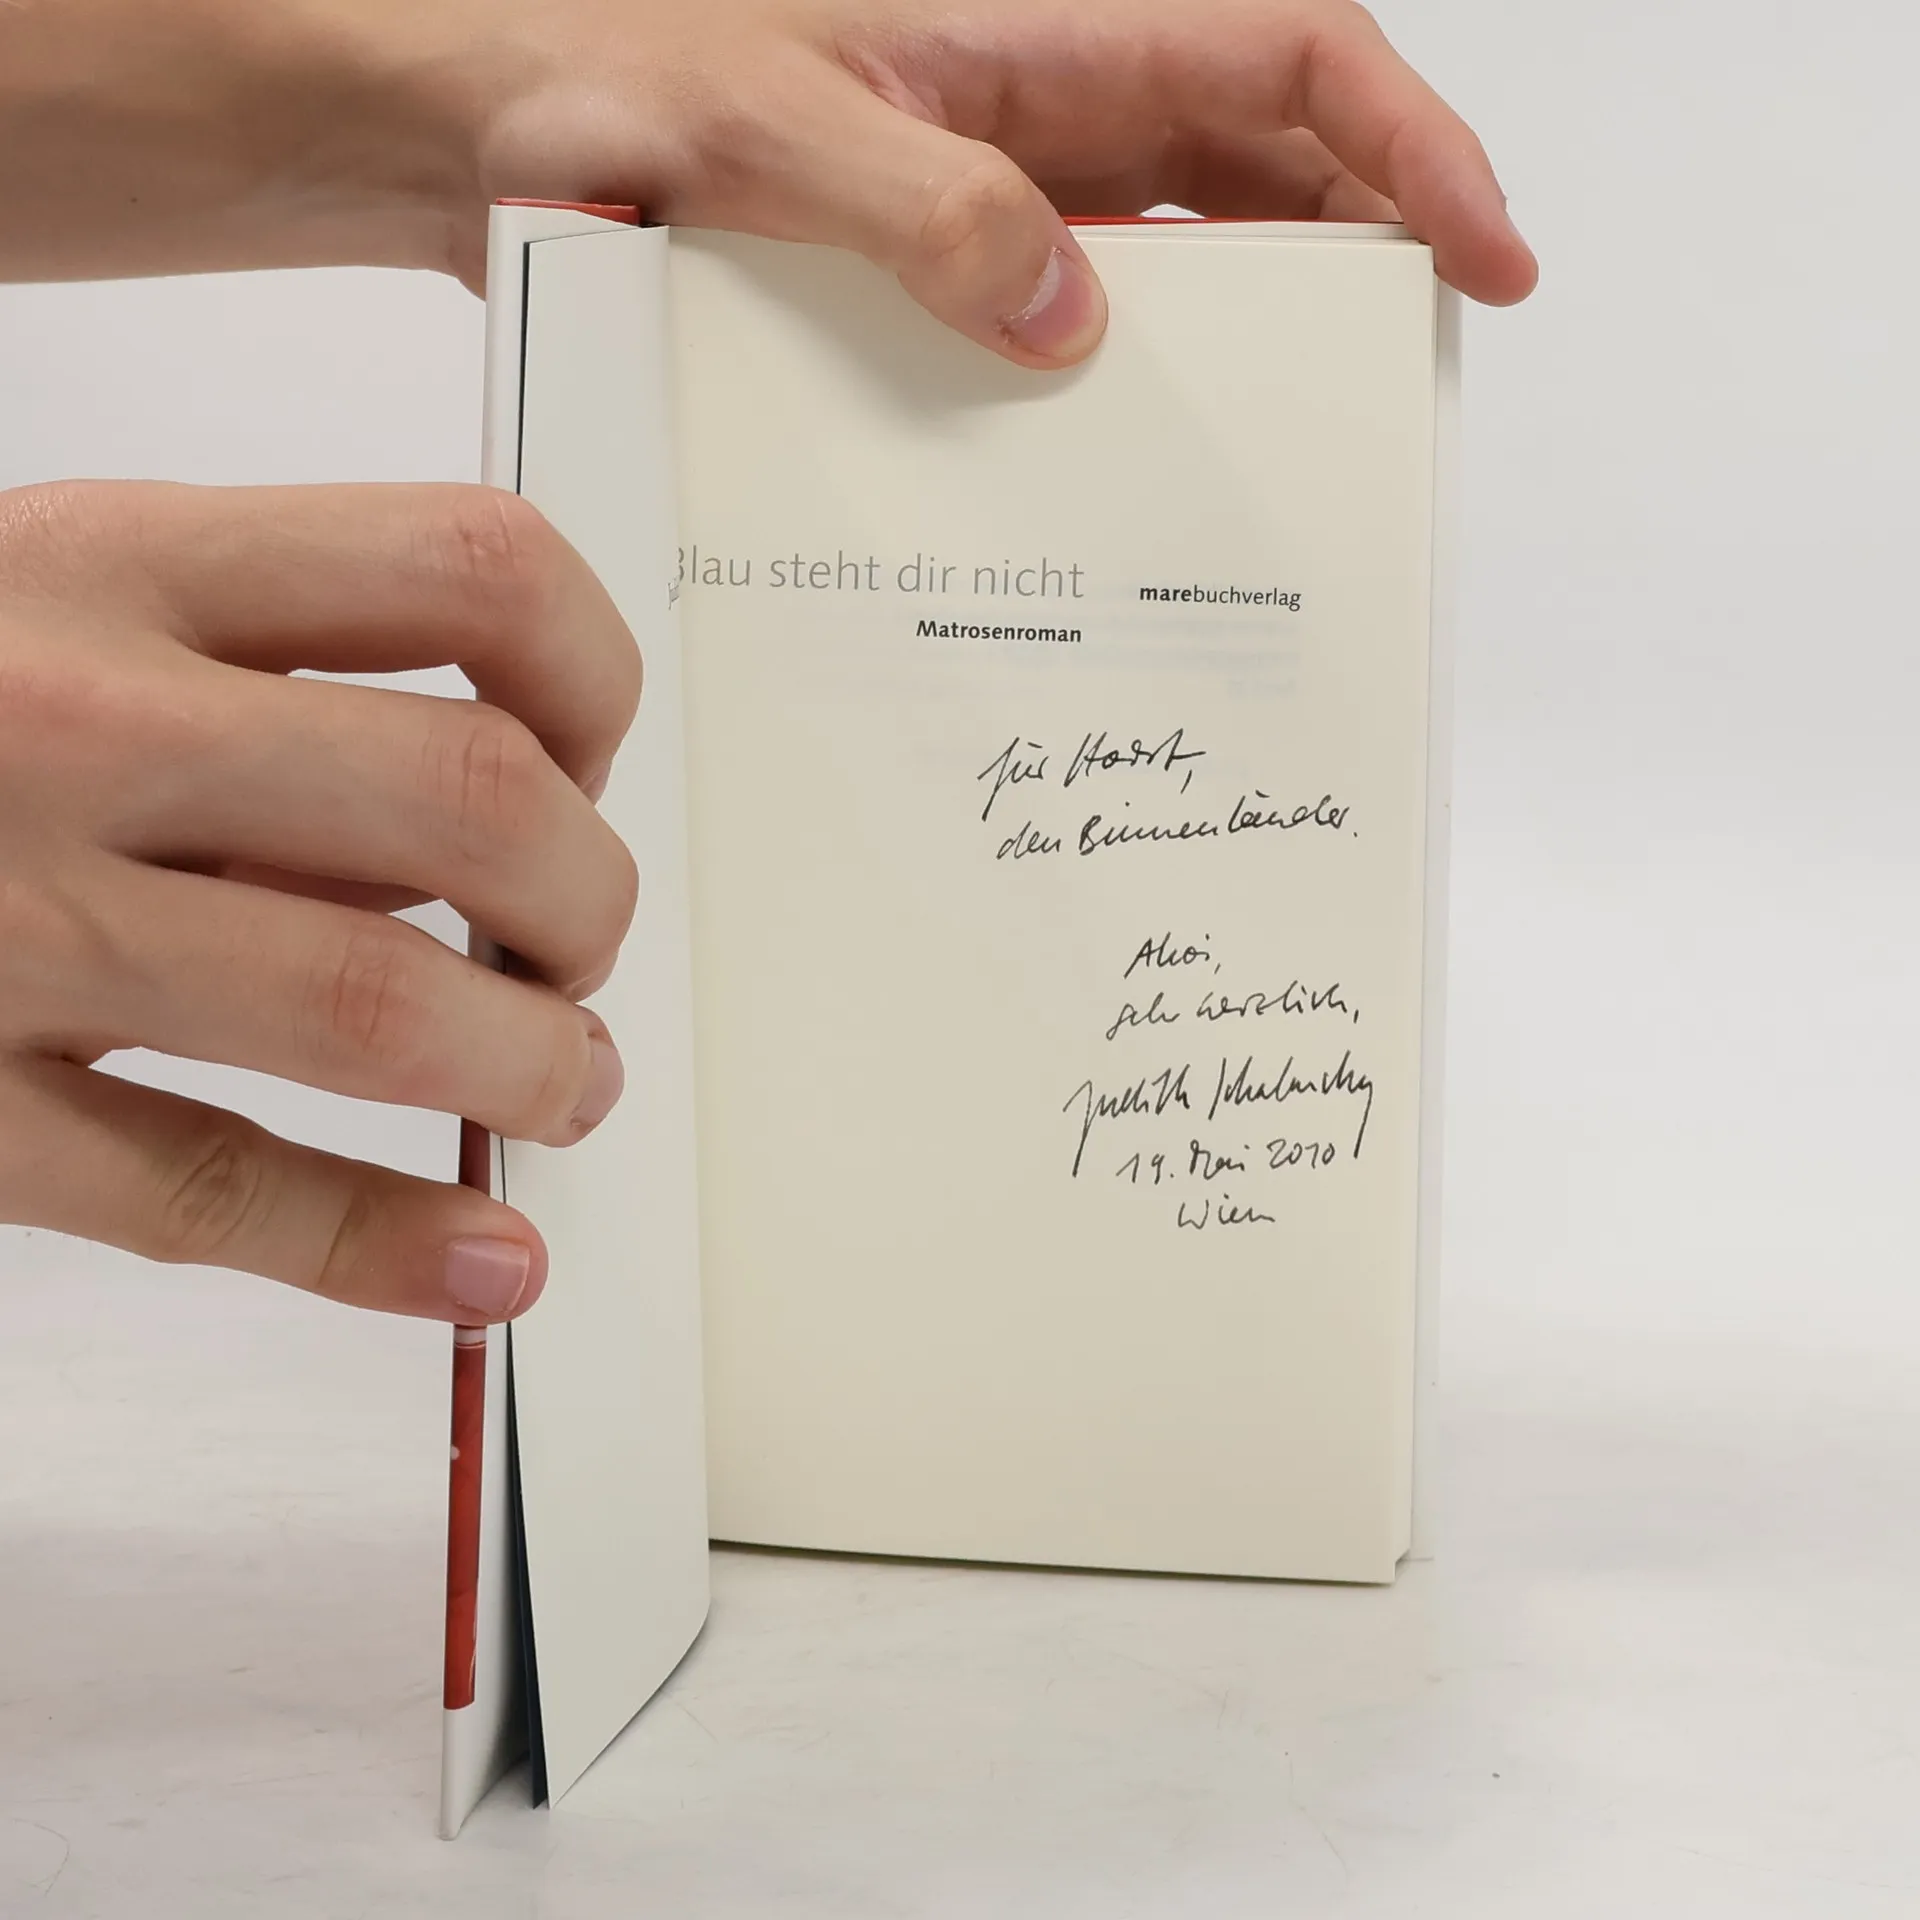 Blau steht dir nicht marebuchverlag
Matrosenroman
für Horst,
den Binnenländer.
Ahoi,
sehr herzlich,
Judith Schalansky
19. Mai 2010
Wien